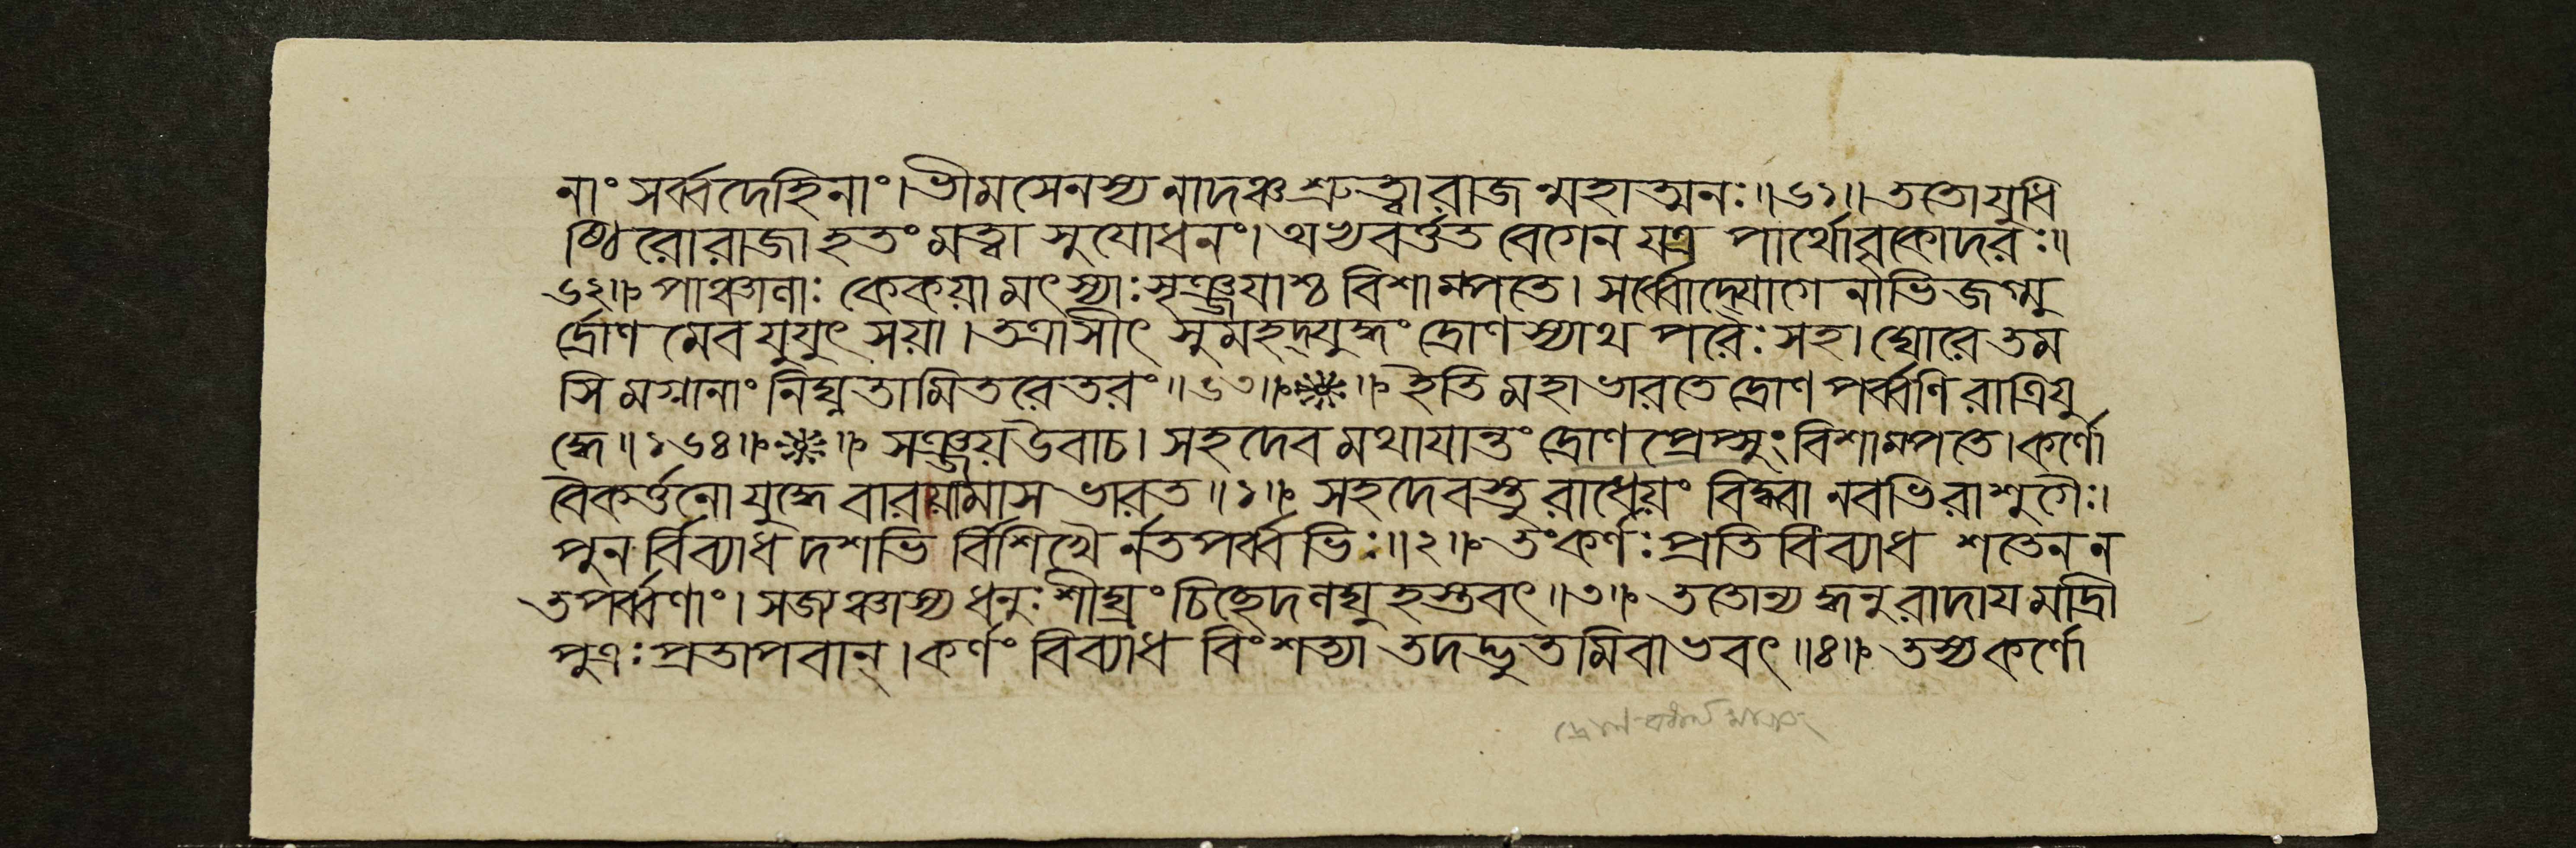 নাং সর্ব্বদেহিনাং। ভীমসেনস্য নাদঞ্চ শ্রুত্বা রাজন্মহাত্মনঃ॥৬১॥ ততো যুধি
ষ্ঠিরো রাজা হতং মত্বা সুযোধনং। অভ্যবর্ত্তত বেগেন যত্র পার্থো বৃকোদরঃ॥
৬২॥ পাঞ্চালাঃ কেকয়া মৎস্যাঃ সৃঞ্জয়াশ্চ বিশাম্পতে। সর্ব্বোদ্যোগেনাভিজগ্মু
র্দ্রোণমেব যুযুৎসয়া। তত্রাসীৎ সুমহদ্যুদ্ধং দ্রোণস্যাথ পরৈঃ সহ। ঘোরে তম
সি মগ্নানাং নিঘ্নতামিতরেতরং॥৬৩॥ ইতি মহাভারতে দ্রোণপর্ব্বণি রাত্রিযু
দ্ধে॥১৬৪॥ সঞ্জয় উবাচ। সহদেবমথায়ান্তং দ্রোণপ্রেপ্সুং বিশাম্পতে। কর্ণো
বৈকর্ত্তনো যুদ্ধে বারয়ামাস ভারত॥১॥ সহদেবস্তু রাধেয়ং বিদ্ধ্বা নবভিরাশুগৈঃ।
পুনর্বিব্যাধ দশভির্বিশিখৈর্নতপর্ব্বভিঃ॥২॥ তং কর্ণঃ প্রতিবিব্যাধ শতেন ন
তপর্ব্বণাং। সজ্যঞ্চাস্য ধনুঃ শীঘ্রং চিচ্ছেদ লঘুহস্তবৎ॥৩॥ ততোন্যদ্ধনুরাদায় মাদ্রী
পুত্রঃ প্রতাপবান্। কর্ণং বিব্যাধ বিংশত্যা তদদ্ভুতমিবাভবৎ॥৪॥ তস্য কর্ণো